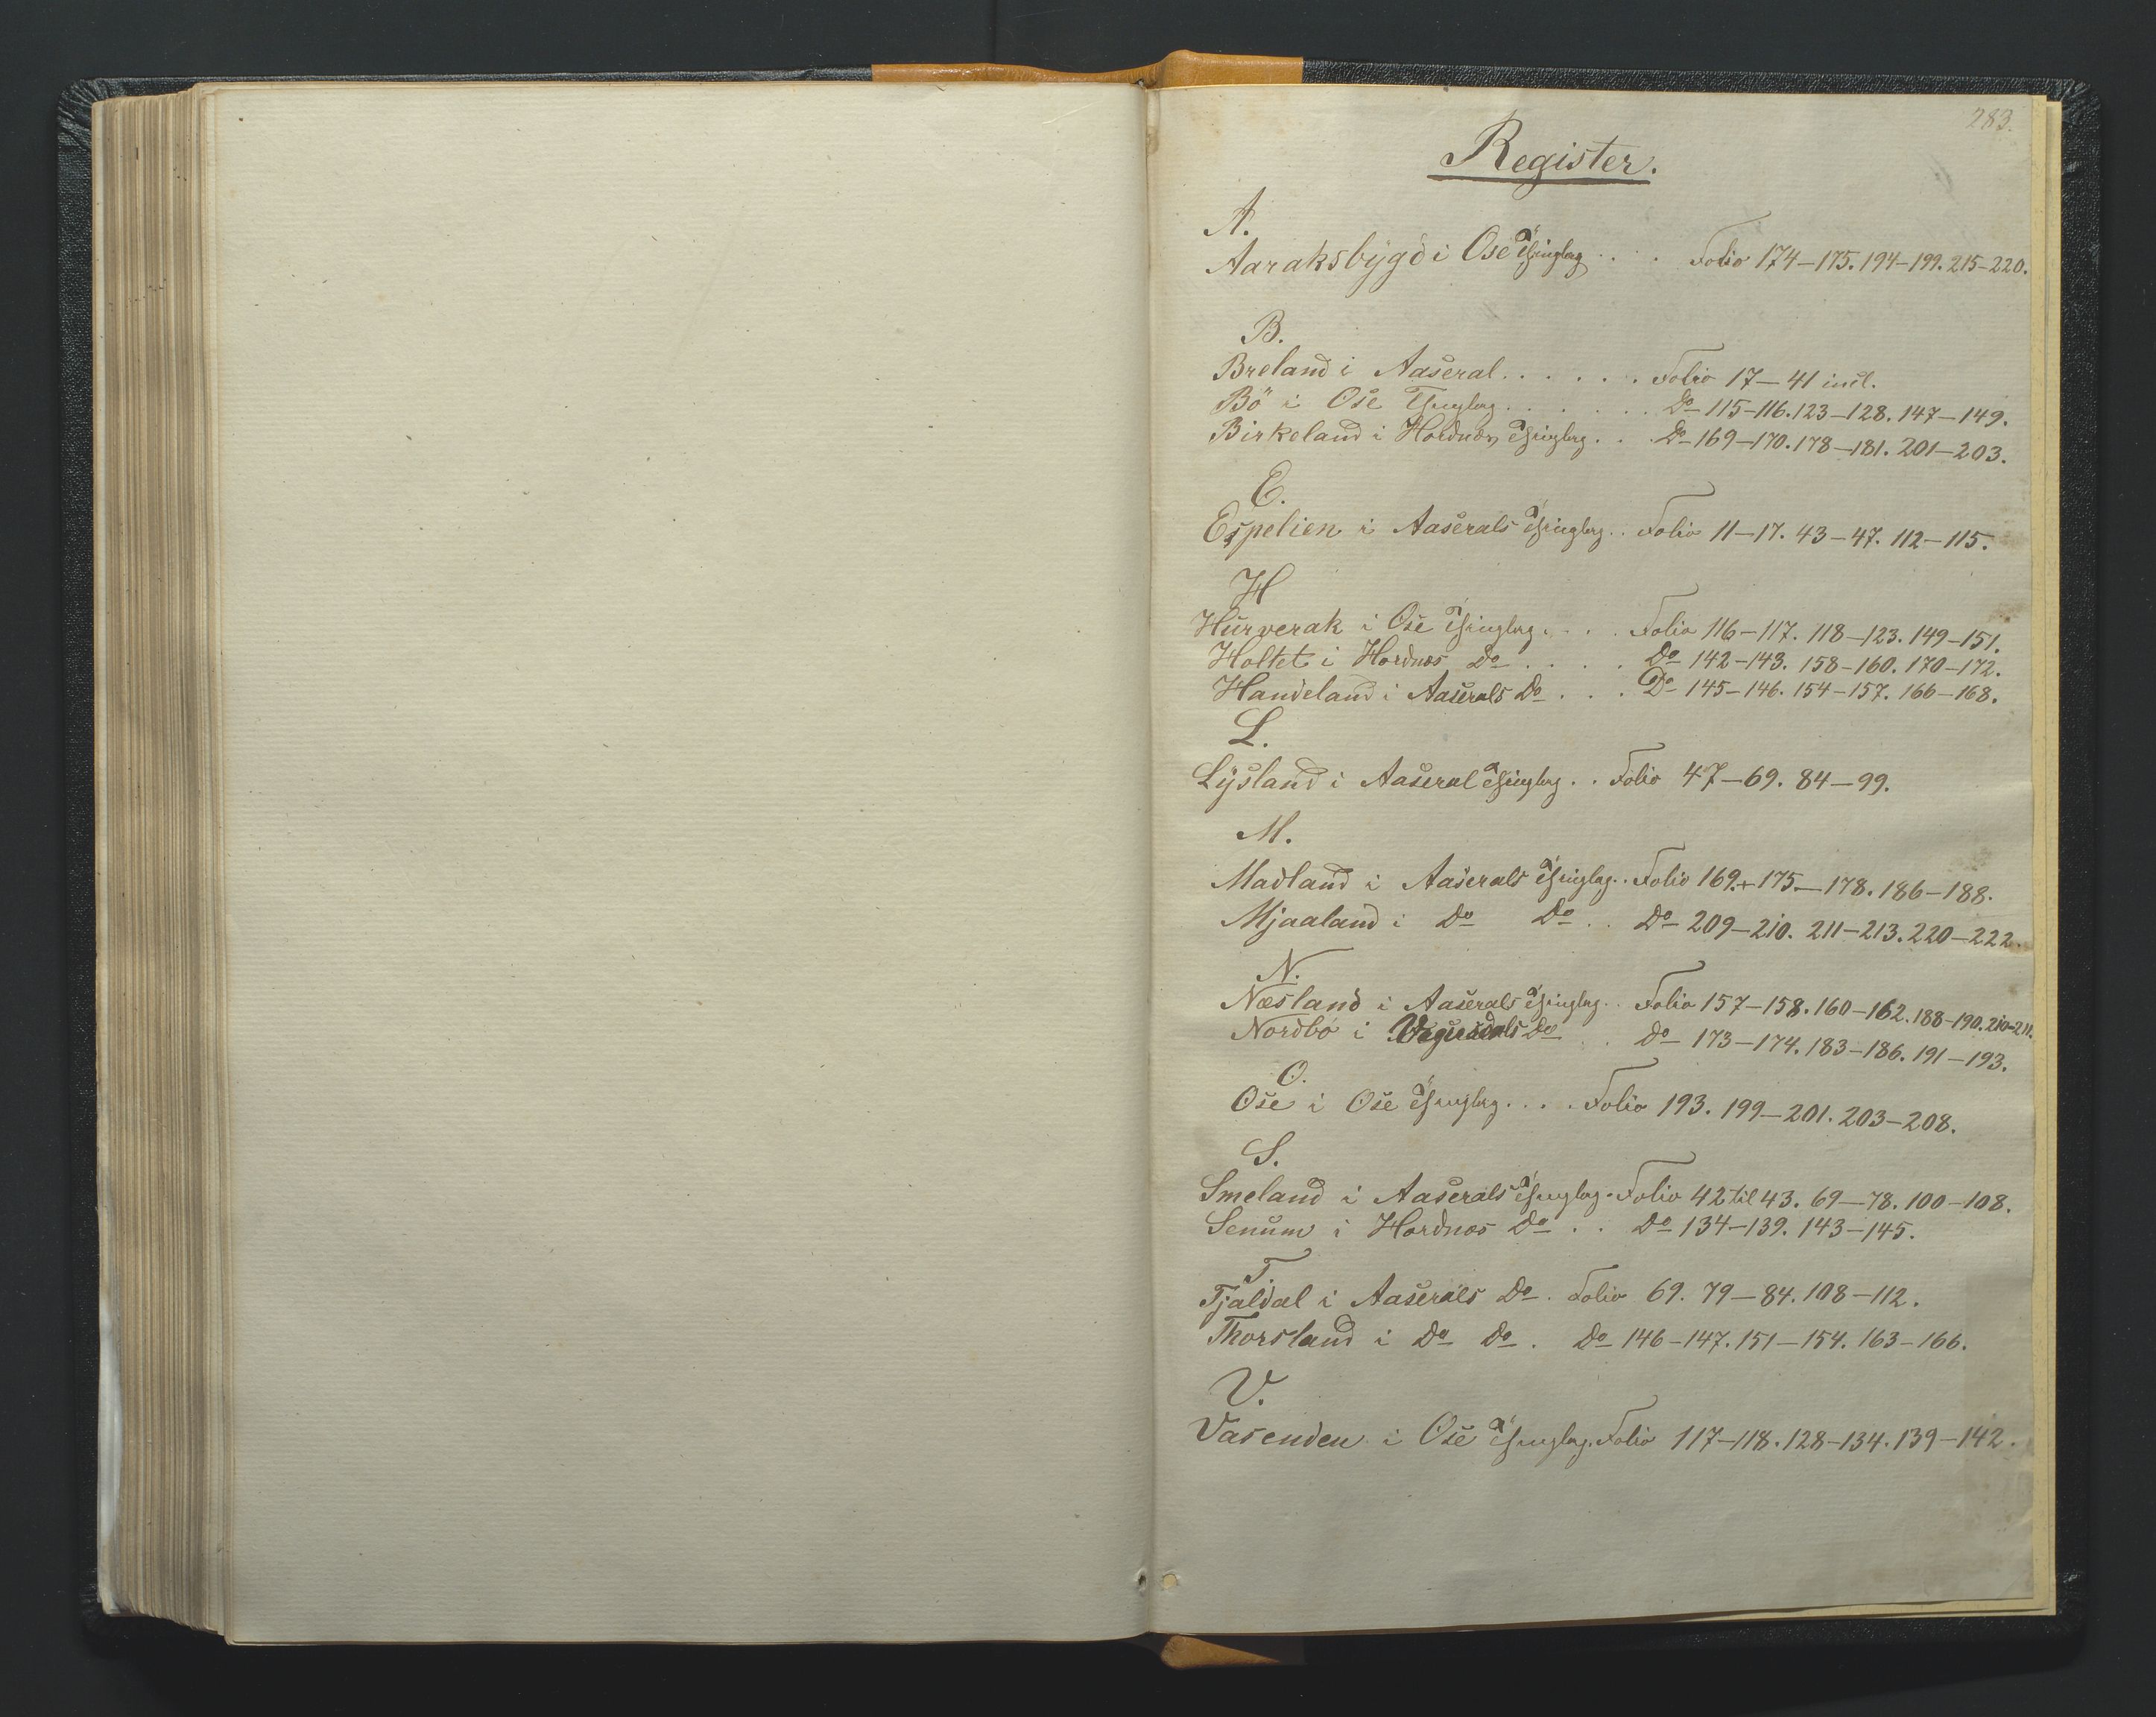 283.
Register.
A.
Aaraksbygd i Ose Thinglag . . . Folio 174–175. 194–199. 215–220.
B.
Breland i Aaseral . . . . . . Folio 17–41 incl.
Bö i Ose Thinglag . . . . . . Do 115–116. 123–128. 147–149.
Birkeland i Hordnæs Thinglag . . Do 169–170. 178–181. 201–203.
E.
Espelien i Aaserals Thinglag . . Folio 11–17. 43–47. 112–115.
H
Hurverak i Ose Thinglag . . . . Folio 116–117. 118–123. 149–151.
Holtet i Hordnæs Do . . . . Do 142–143. 158–160. 170–172.
Handeland i Aaserals Do . . . Do 145–146. 154–157. 166–168.
L.
Lysland i Aaseral Thinglag . . Folio 47–69. 84–99.
M.
Madland i Aaserals Thinglag . . Folio 169. + 175–178. 186–188.
Mjaaland i Do Do . . Do 209–210. 211–213. 220–222.
N.
Næsland i Aaserals Thinglag . . Folio 157–158. 160–162. 188–190. 210–211.
Nordbö i Vegusdals Do . . Do 173–174. 183–186. 191–193.
O.
Ose i Ose Thinglag . . . . Folio 193. 199–201. 203–208.
S.
Smeland i Aaserals Thinglag. Folio 42 til 43. 69–78. 100–108.
Senum i Hordnæs Do . . Do 134–139. 143–145.
T.
Tjaldal i Aaserals Do . Folio 69. 79–84. 108–112.
Thorsland i Do Do . Do 146–147. 151–154. 163–166.
V.
Vasenden i Ose Thinglag. Folio 117–118. 128–134. 139–142.